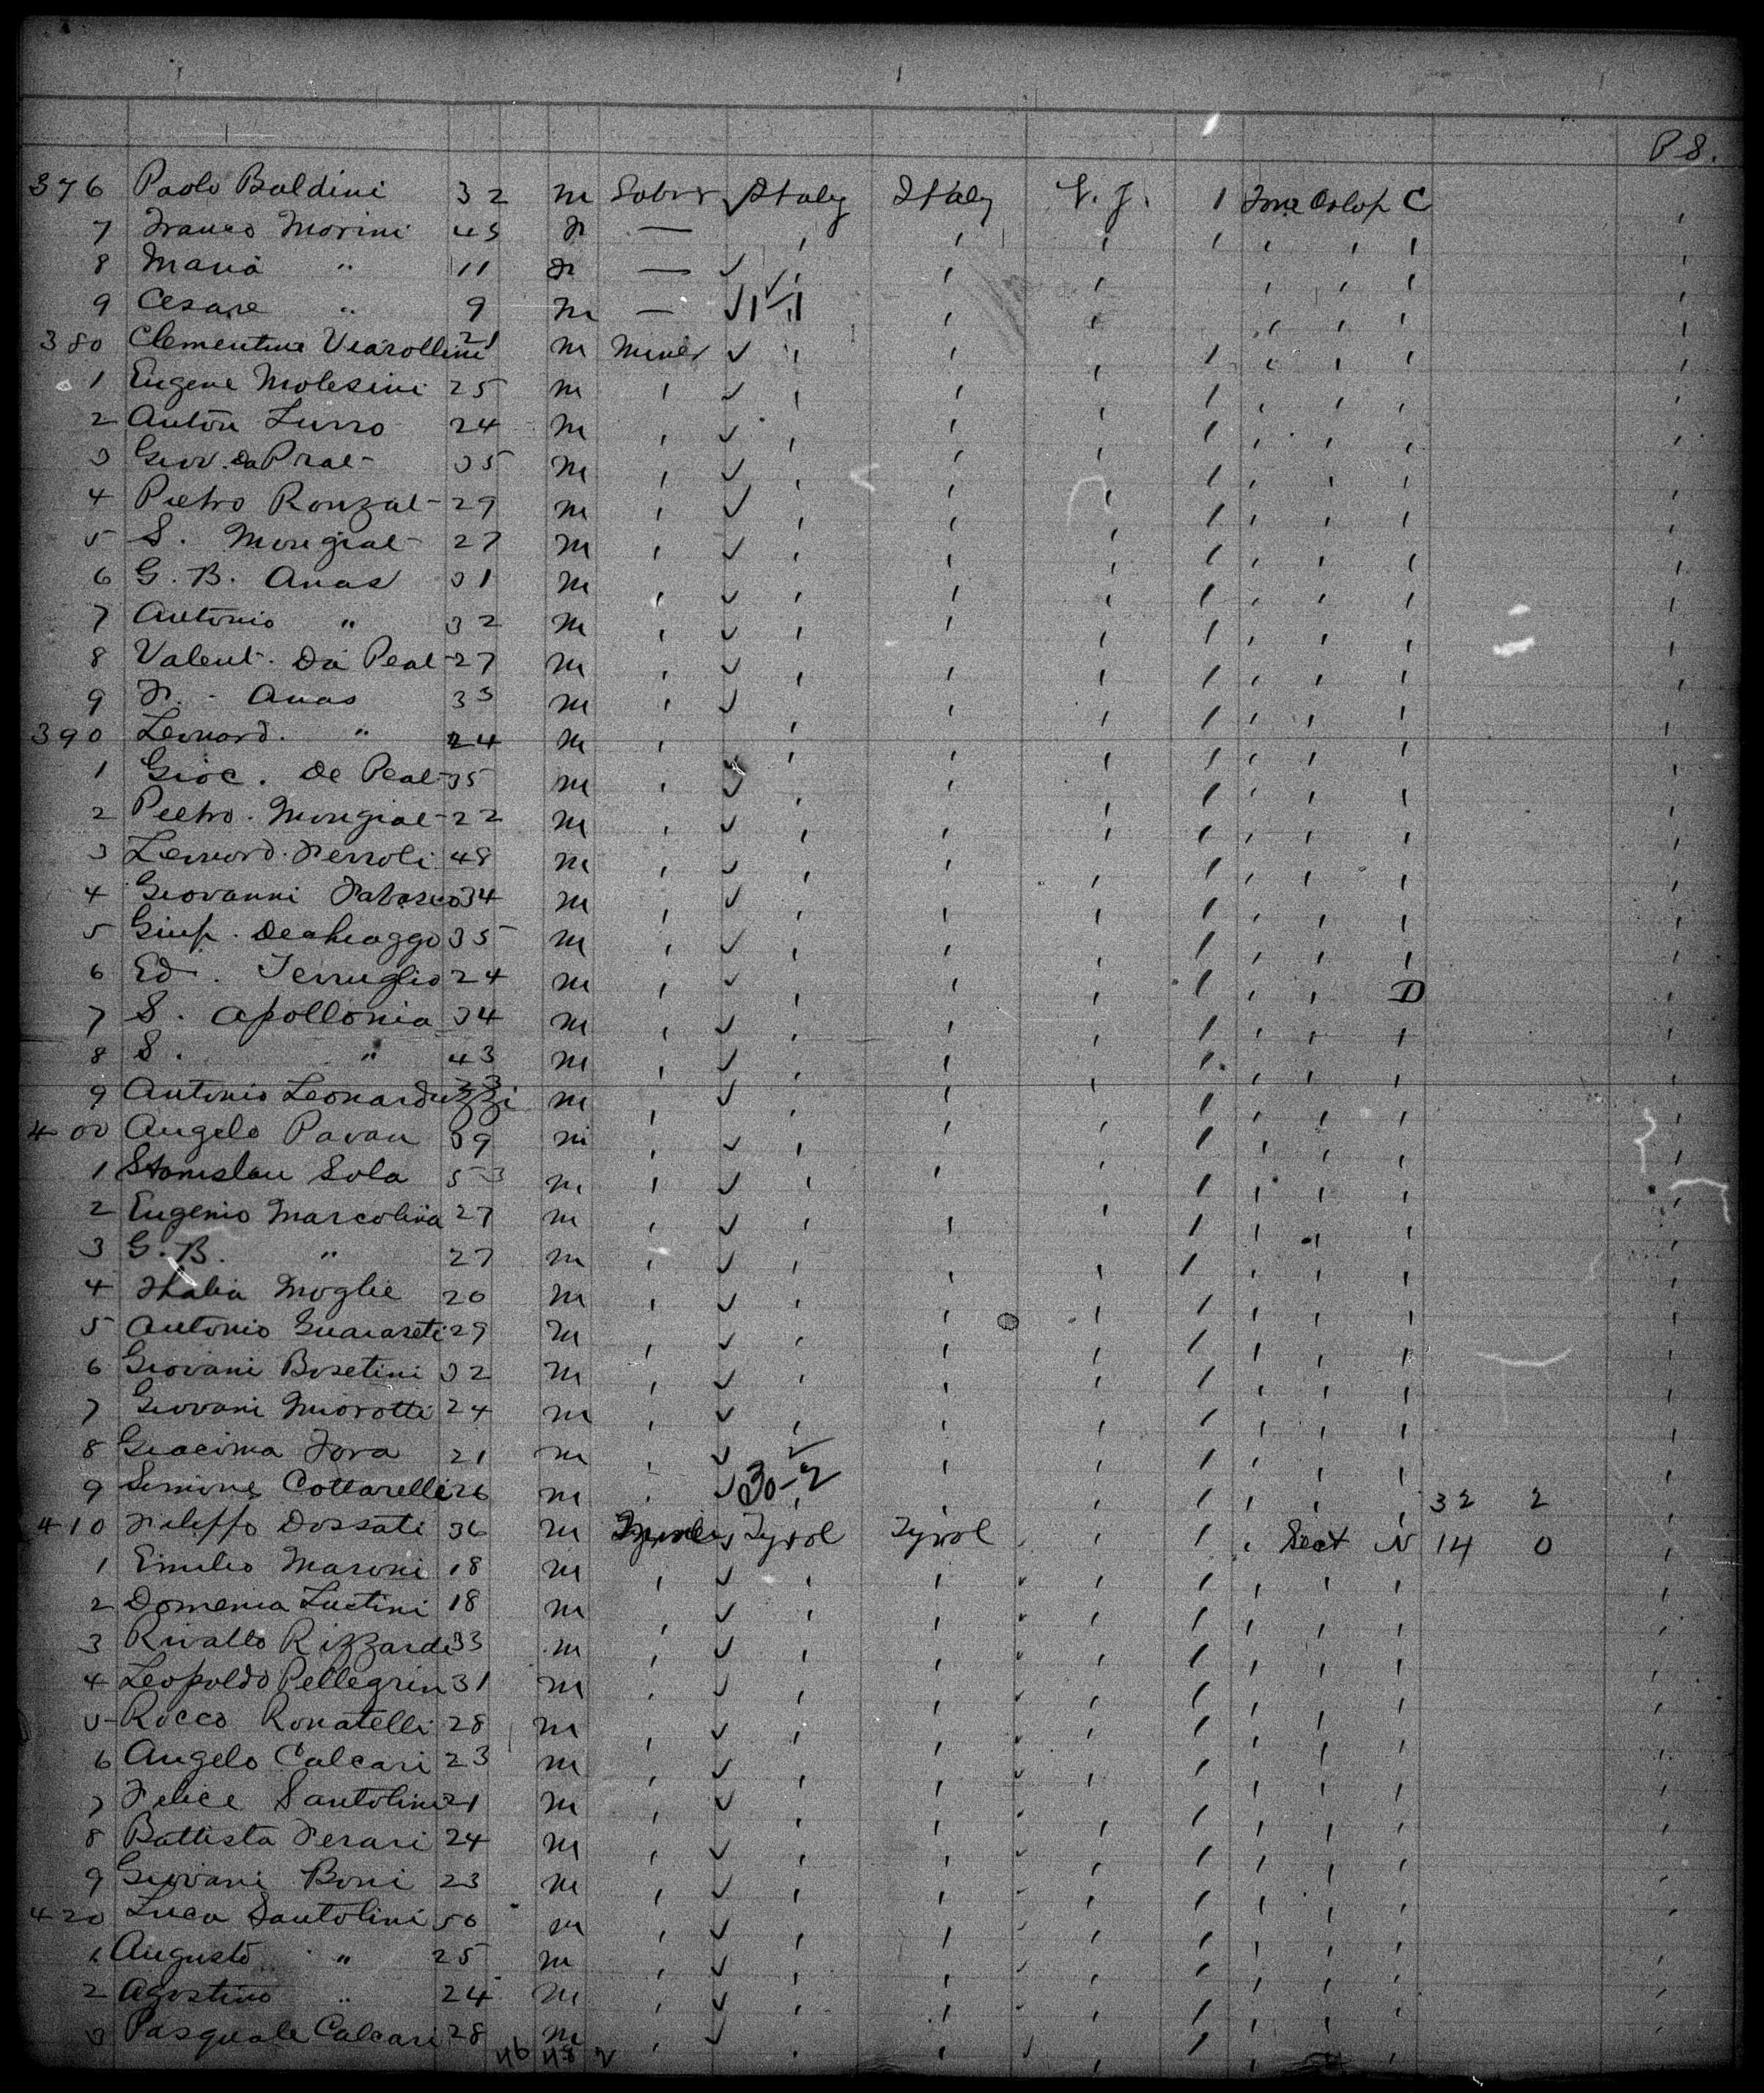 P 8.
376 Paolo Baldini 32 m Labr ✓ Italy Italy N. Y. 1 Fore Orlop C
7 Franco Morini 45 f — , , , 1 , , ,
8 Maria " 11 f — ✓ , , , , , ,
9 Cesare " 9 m — ✓ 1 , , , , , ,
380 Clementina 21 m Miner ✓ , , , 1 , , ,
1 Eugene Molesini 25 m , ✓ , , , 1 , , ,
2 Anton 24 m , ✓ , , , 1 , , ,
3 Giov. Da Prat 35 m , ✓ , , , 1 , , ,
4 Pietro Ronzat 29 m , ✓ , , , 1 , , ,
5 S. Mongiat 27 m , ✓ , , , 1 , , ,
6 G. B. Anas 31 m , ✓ , , , 1 , , ,
7 Antonio " 32 m , ✓ , , , 1 , , ,
8 Valent. Da Peat 27 m , ✓ , , , 1 , , ,
9 F. Anas 33 m , ✓ , , , 1 , , ,
390 Leonard. " 24 m , ✓ , , , , , ,
1 Gioc. De Peat 35 m , ✓ , , , 1 , , ,
2 Pietro. Mongiat 22 m , ✓ , , , 1 , , ,
3 Leonard. Ferroli 48 m , ✓ , , , 1 , , ,
4 Giovanni 34 m , ✓ , , , 1 , , ,
5 Giusp. 35 m , ✓ , , , 1 , , ,
6 Ed. Ferruglio 24 m , ✓ , , , 1 , , D
7 S. Apollonia 34 m , ✓ , , , 1 , , ,
8 S. " 43 m , ✓ , , , 1 , , ,
9 Antonio Leonarduzzi 33 m , ✓ , , , 1 , , ,
400 Angelo Pavan 39 m , ✓ , , , 1 , , ,
1 Stanislau Sola 53 m , ✓ , , , 1 , , ,
2 Eugenio Marcolina 27 m , ✓ , , , 1 , , ,
3 G. B. " 27 m , ✓ , , , 1 , , ,
4 Italia Moglie 20 m , ✓ , , , 1 , , ,
5 Antonio 29 m , ✓ , , , 1 , , ,
6 Giovani Bosetini 32 m , ✓ , , , 1 , , ,
7 Giovani Miorotti 24 m , ✓ , , , 1 , , ,
8 Giacima Fora 21 m , ✓ , , , 1 , , ,
9 Simone Cottarelli 26 m , ✓ 30-2 , , , 1 , , , 32 2
410 Fileppo Dossati 36 m ✓ Tyrol Tyrol , , 1 , Sect N 14 0
1 Emilio Maroni 18 m , ✓ , , , 1 , , ,
2 Domenia Lustini 18 m , ✓ , , , 1 , , ,
3 Rivalto Rizzardi 33 m , ✓ , , , 1 , , ,
4 Leopoldo Pellegrin 31 m , ✓ , , , 1 , , ,
5 Rocco Ronatelli 28 m , ✓ , , , 1 , , ,
6 Angelo Calcari 23 m , ✓ , , , 1 , , ,
7 Felice Santolini 21 m , ✓ , , , 1 , , ,
8 Battista Ferari 24 m , ✓ , , , 1 , , ,
9 Giovani Boni 23 m , ✓ , , , 1 , , ,
420 Luca Santolini 50 m , ✓ , , , 1 , , ,
1 Augusto " 25 m , ✓ , , , 1 , , ,
2 Agostino " 24 m , ✓ , , , 1 , , ,
3 Pasquale Calcari 28 m , ✓ , , , 1 , , ,
46 48 2